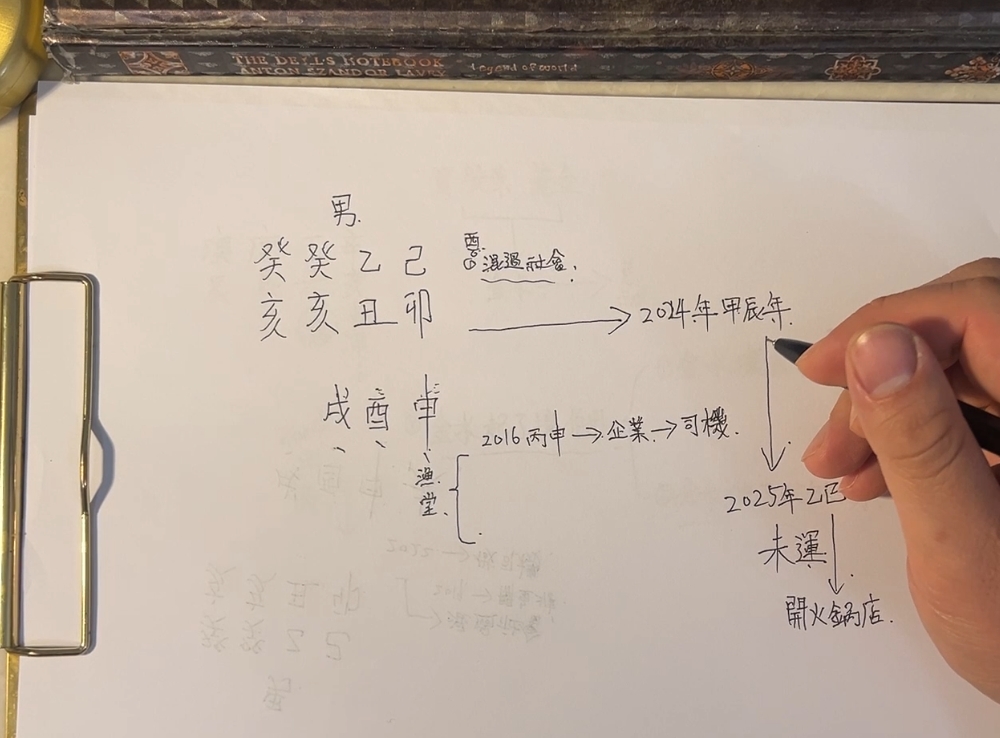 THE DEVIL'S NOTEBOOK
ANTON SZANDOR LAVEY
Legend of World
男.
癸癸乙己
亥亥丑卯
酉
混過社會.
2024年甲辰年.
戌酉申
2016丙申→企業→司機.
漁
堂
2025年乙巳
未運
開火鍋店.